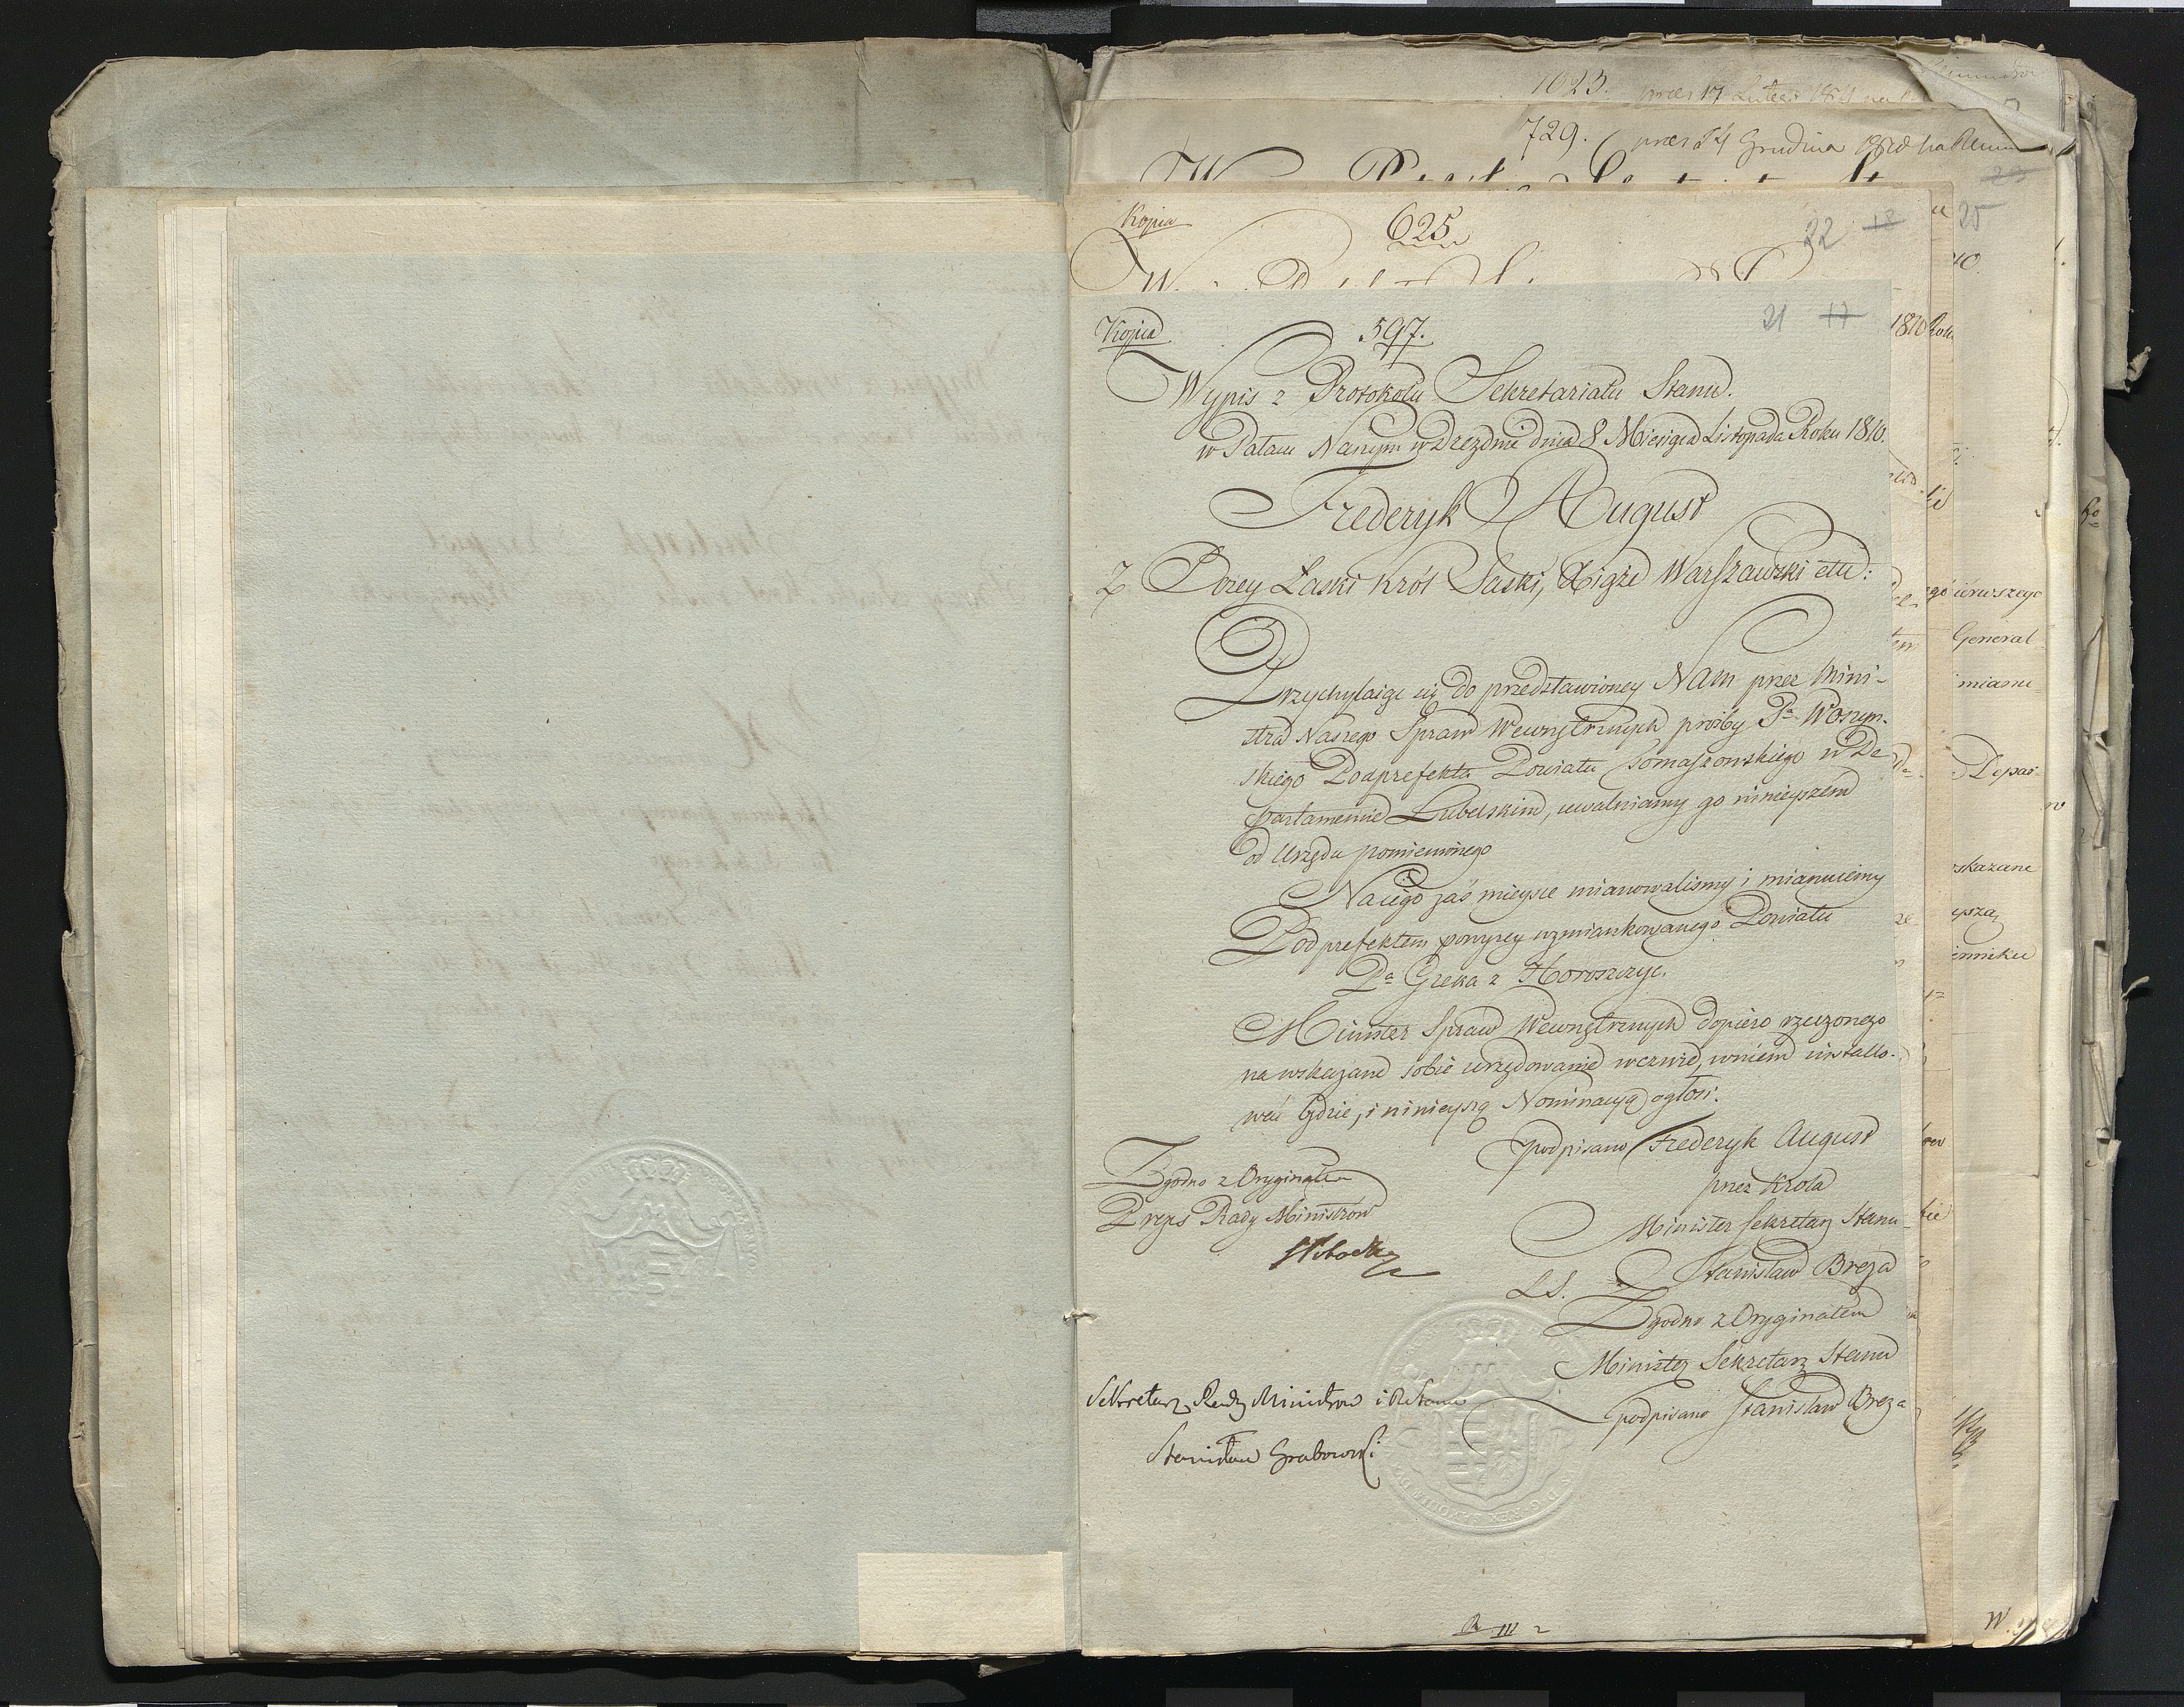 1623. pres 17 Lutego 1811
729. pres 24 Grudnia 1810 na Plenum
Kopia
625
22 18
25
Kopia
597.
21 17
Wypis z Protokołu Sekretariatu Stanu.
w Pałacu Naszym w Dreznie dnia 8 Miesiąca Listopada Roku 1810.
Frederyk August
Z Bożey Łaski Król Saski, Xiąże Warszawski etc:
Przychylaiąc się do przedstawioney Nam przez Mini-
stra Naszego Spraw Wewnętrznych prośby Pa Woszyn-
skiego Podprefekta Powiatu Tomaszowskiego w De-
partamencie Lubelskim, uwalniamy go ninieyszem
od Urzędu pomienionego
Na iego zaś mieysce mianowalismy i mianuiemy
Podprefektem powyżey wzmiankowanego Powiatu
Pa Greka z Horoszczyc.
Minister Spraw Wewnętrznych dopiero rzeczonego
na wskazane sobie urzędowanie wezwie, w niem installo-
wać będzie, i ninieyszą Nominacyą ogłosi.
podpisano Frederyk August
przez Krola
Minister Sekretarz Stanu
Stanisław Breza
L.S.
Zgodno z Oryginałem
Minister Sekretarz Stanu
podpisano Stanisław Breza
Zgodno z Oryginałem
Prezes Rady Ministrów
Sekretarz Rady Ministrow i R Stanu
Stanisław Grabowski
1810 Roku
ierwszego
General
miano
Depar
skazane
yszą
ienniku